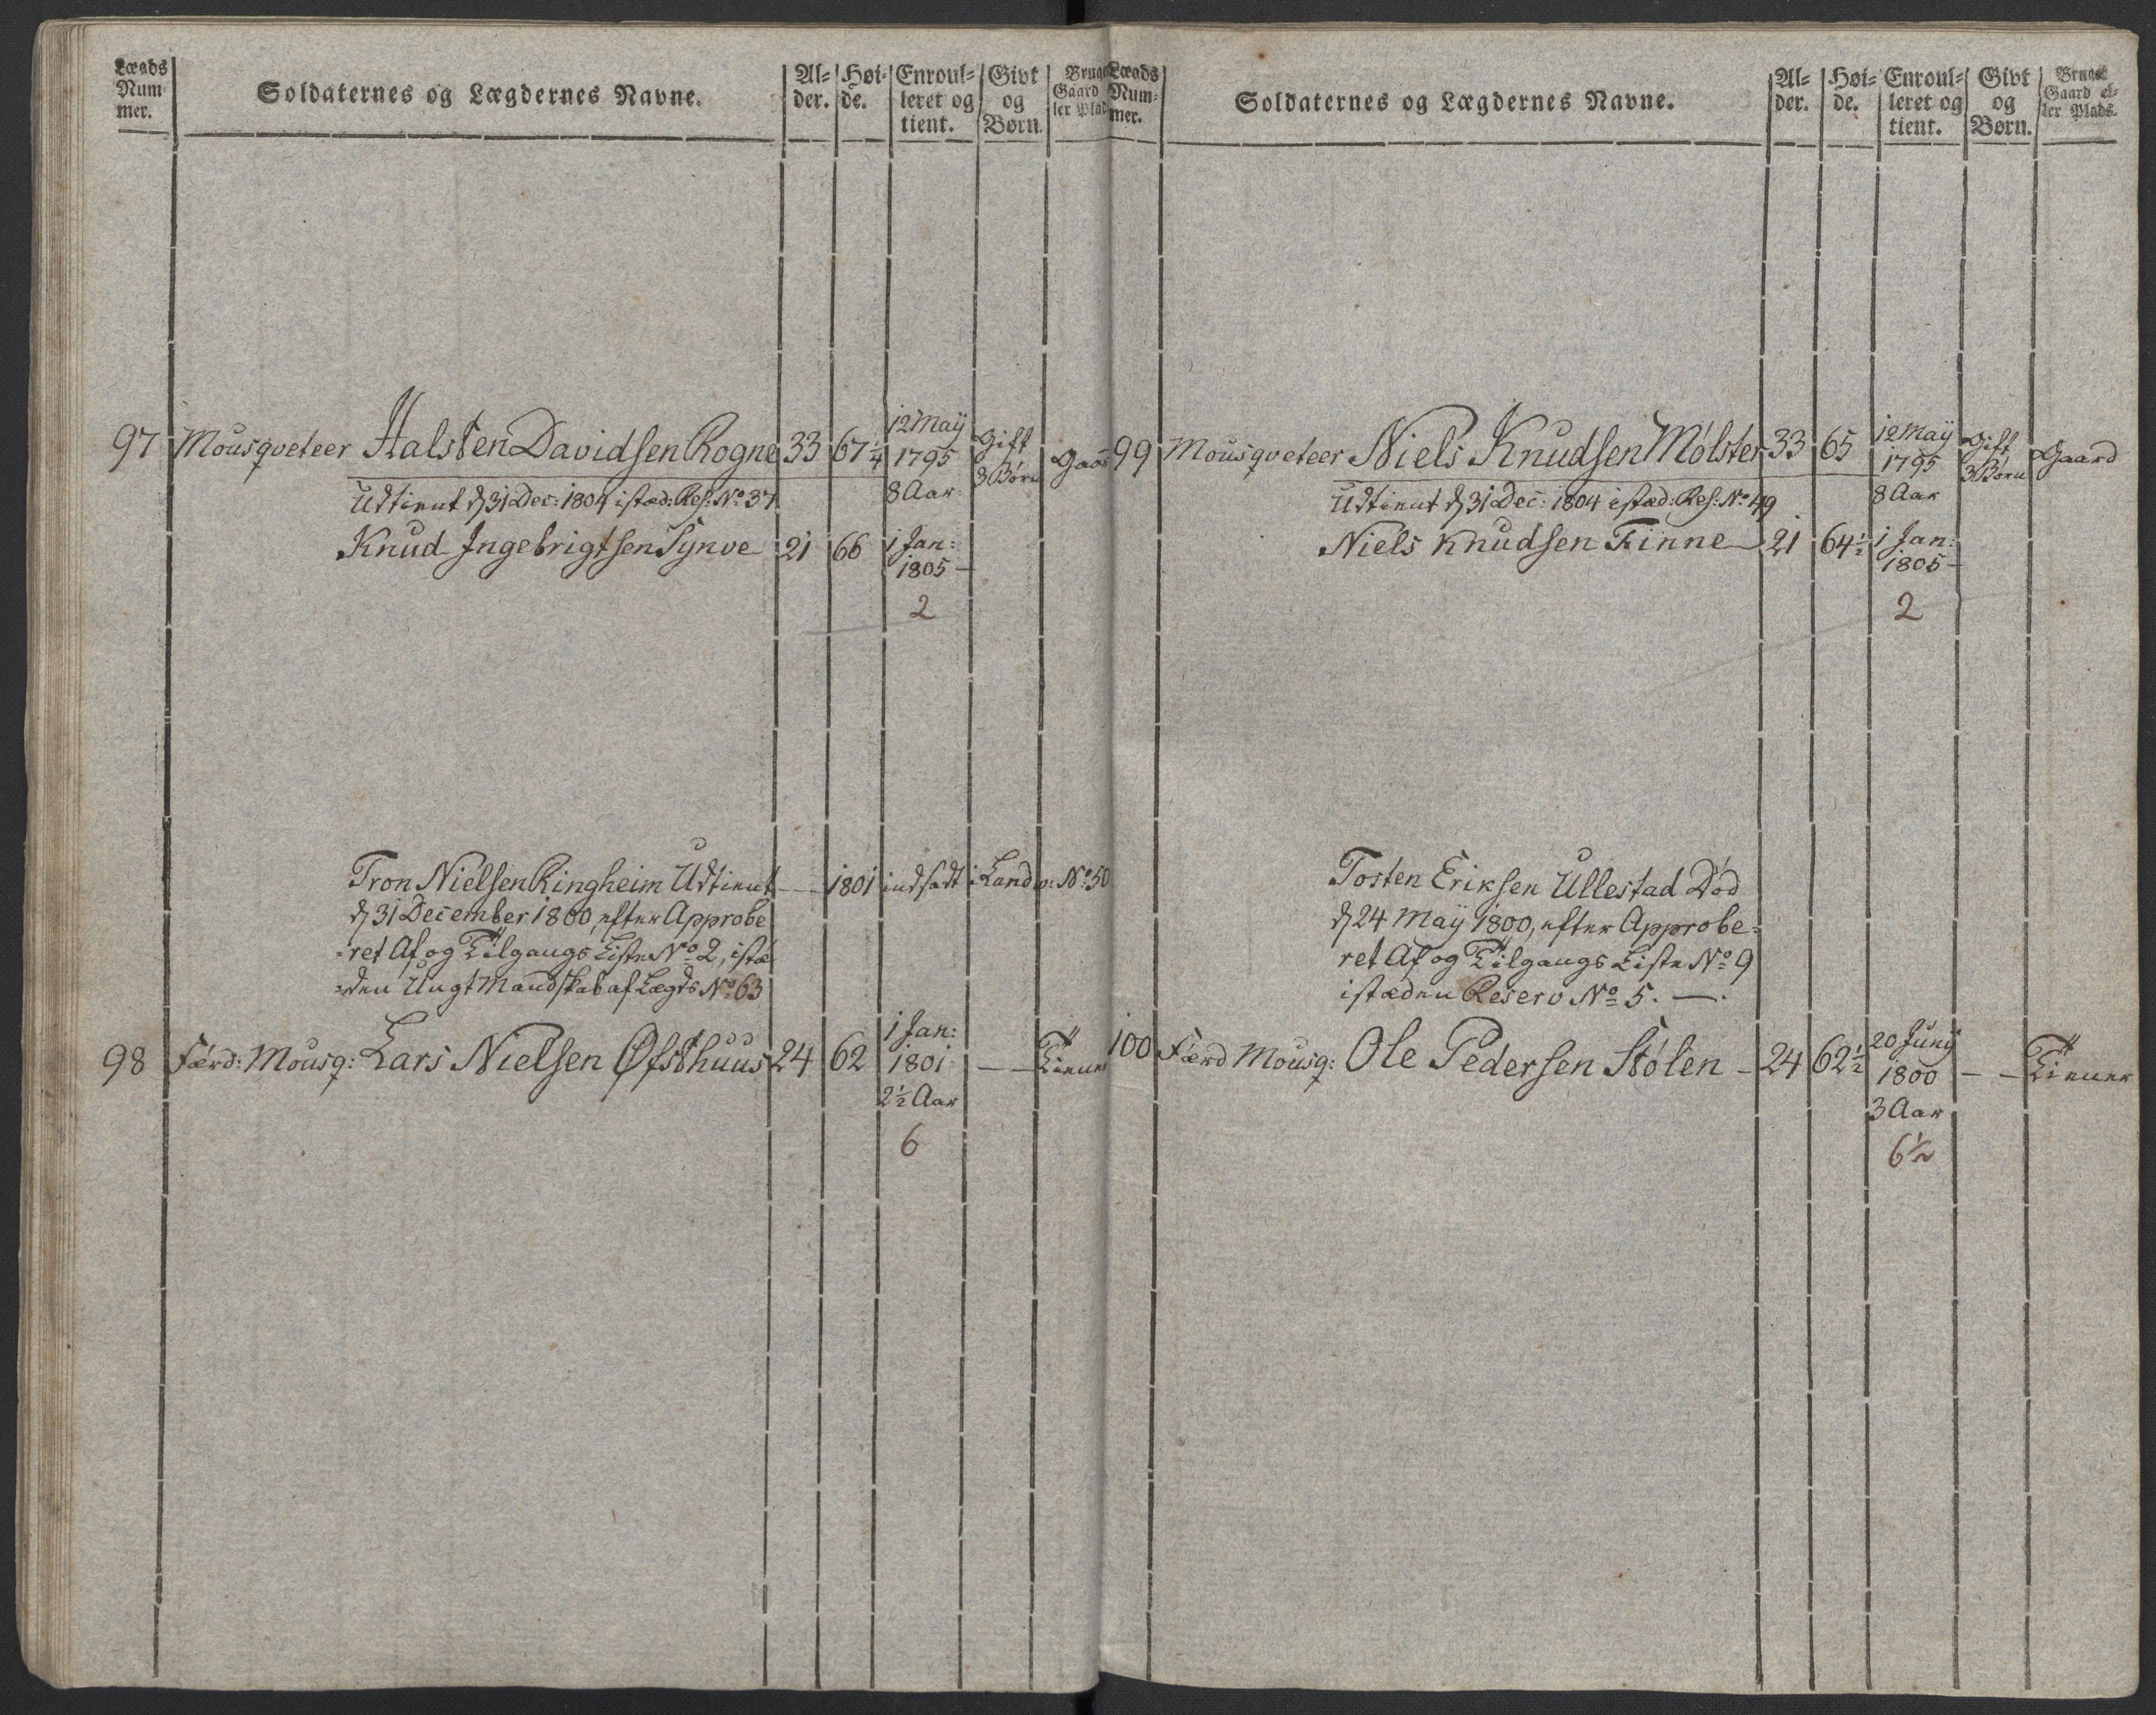 Lægds Nummer.
Soldaternes og Lægdernes Navne.
Alder.
Høide.
Enroulleret og tient.
Givt og Børn.
Bruger Gaard
ler Plads
97 Mousqveteer Halsten Davidsen Rogne 33 67 1/4 12 Maÿ 1795 8 Aar Gift 3 Børn Gaard
Udtient d 31 Dec: 1804 istæd: Res: No 37
Knud Ingebrigtsen Tÿnve 21 66 1 Jan: 1805 –
2
Tron Nielsen Ringheim Udtient — 1801 indsadt i Landv: No 50
d 31 December 1800, efter Approbe
=ret Af og Tilgangs Liste No 2, istæ
=den Ungt Mandskab af Lægds No 63
98 Færd: Mousq: Lars Nielsen Øfsthuus 24 62 1 Jan: 1801 2½ Aar — — Tiener
6
Lægds Nummer.
Soldaternes og Lægdernes Navne.
Alder.
Høide.
Enroulleret og tient.
Givt og Børn.
Bruger Gaard eller Plads.
99 Mousqveteer Niels Knudsen Mølster 33 65 12 Maÿ 1795 8 Aar Gift, 3 Børn Gaard
Udtient d 31 Dec: 1804 istæd: Res: No 49
Niels Knudsen Finne 21 64½ 1 Jan: 1805 –
2
Tosten Eriksen Ullestad Død
d 24 Maÿ 1800, efter Approbe=
ret Af og Tilgangs Liste No 9
istæden Reserv No 5. —.
100 Færd Mousq: Ole Pedersen Stølen – 24 62½ 20 Junÿ 1800 3 Aar — — Tiener
6½